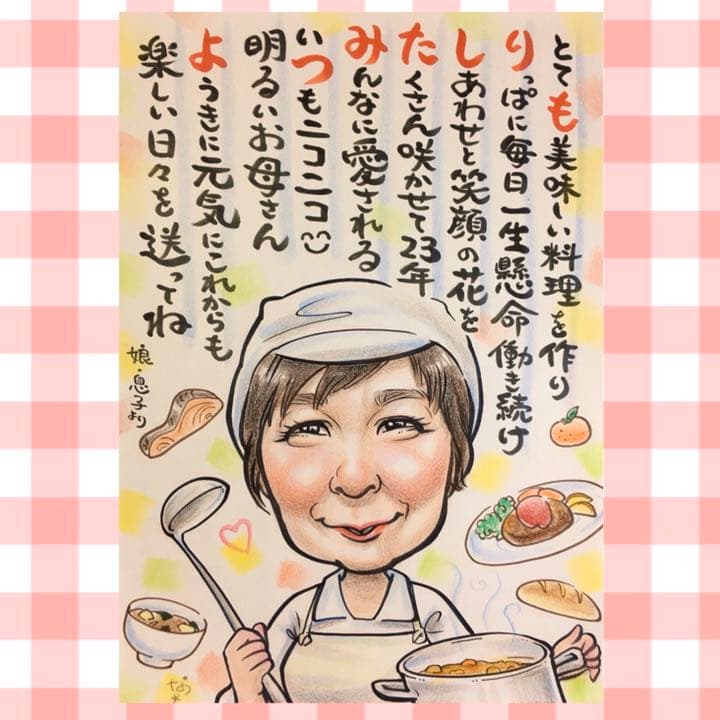 とても美味しい料理を作り
りっぱに毎日一生懸命働き続け
しあわせと笑顔の花を
たくさん咲かせて23年
みんなに愛される
いつもニコニコ
明るいお母さん
ようきに元気にこれからも
楽しい日々を送ってね
娘・息子より
なべ